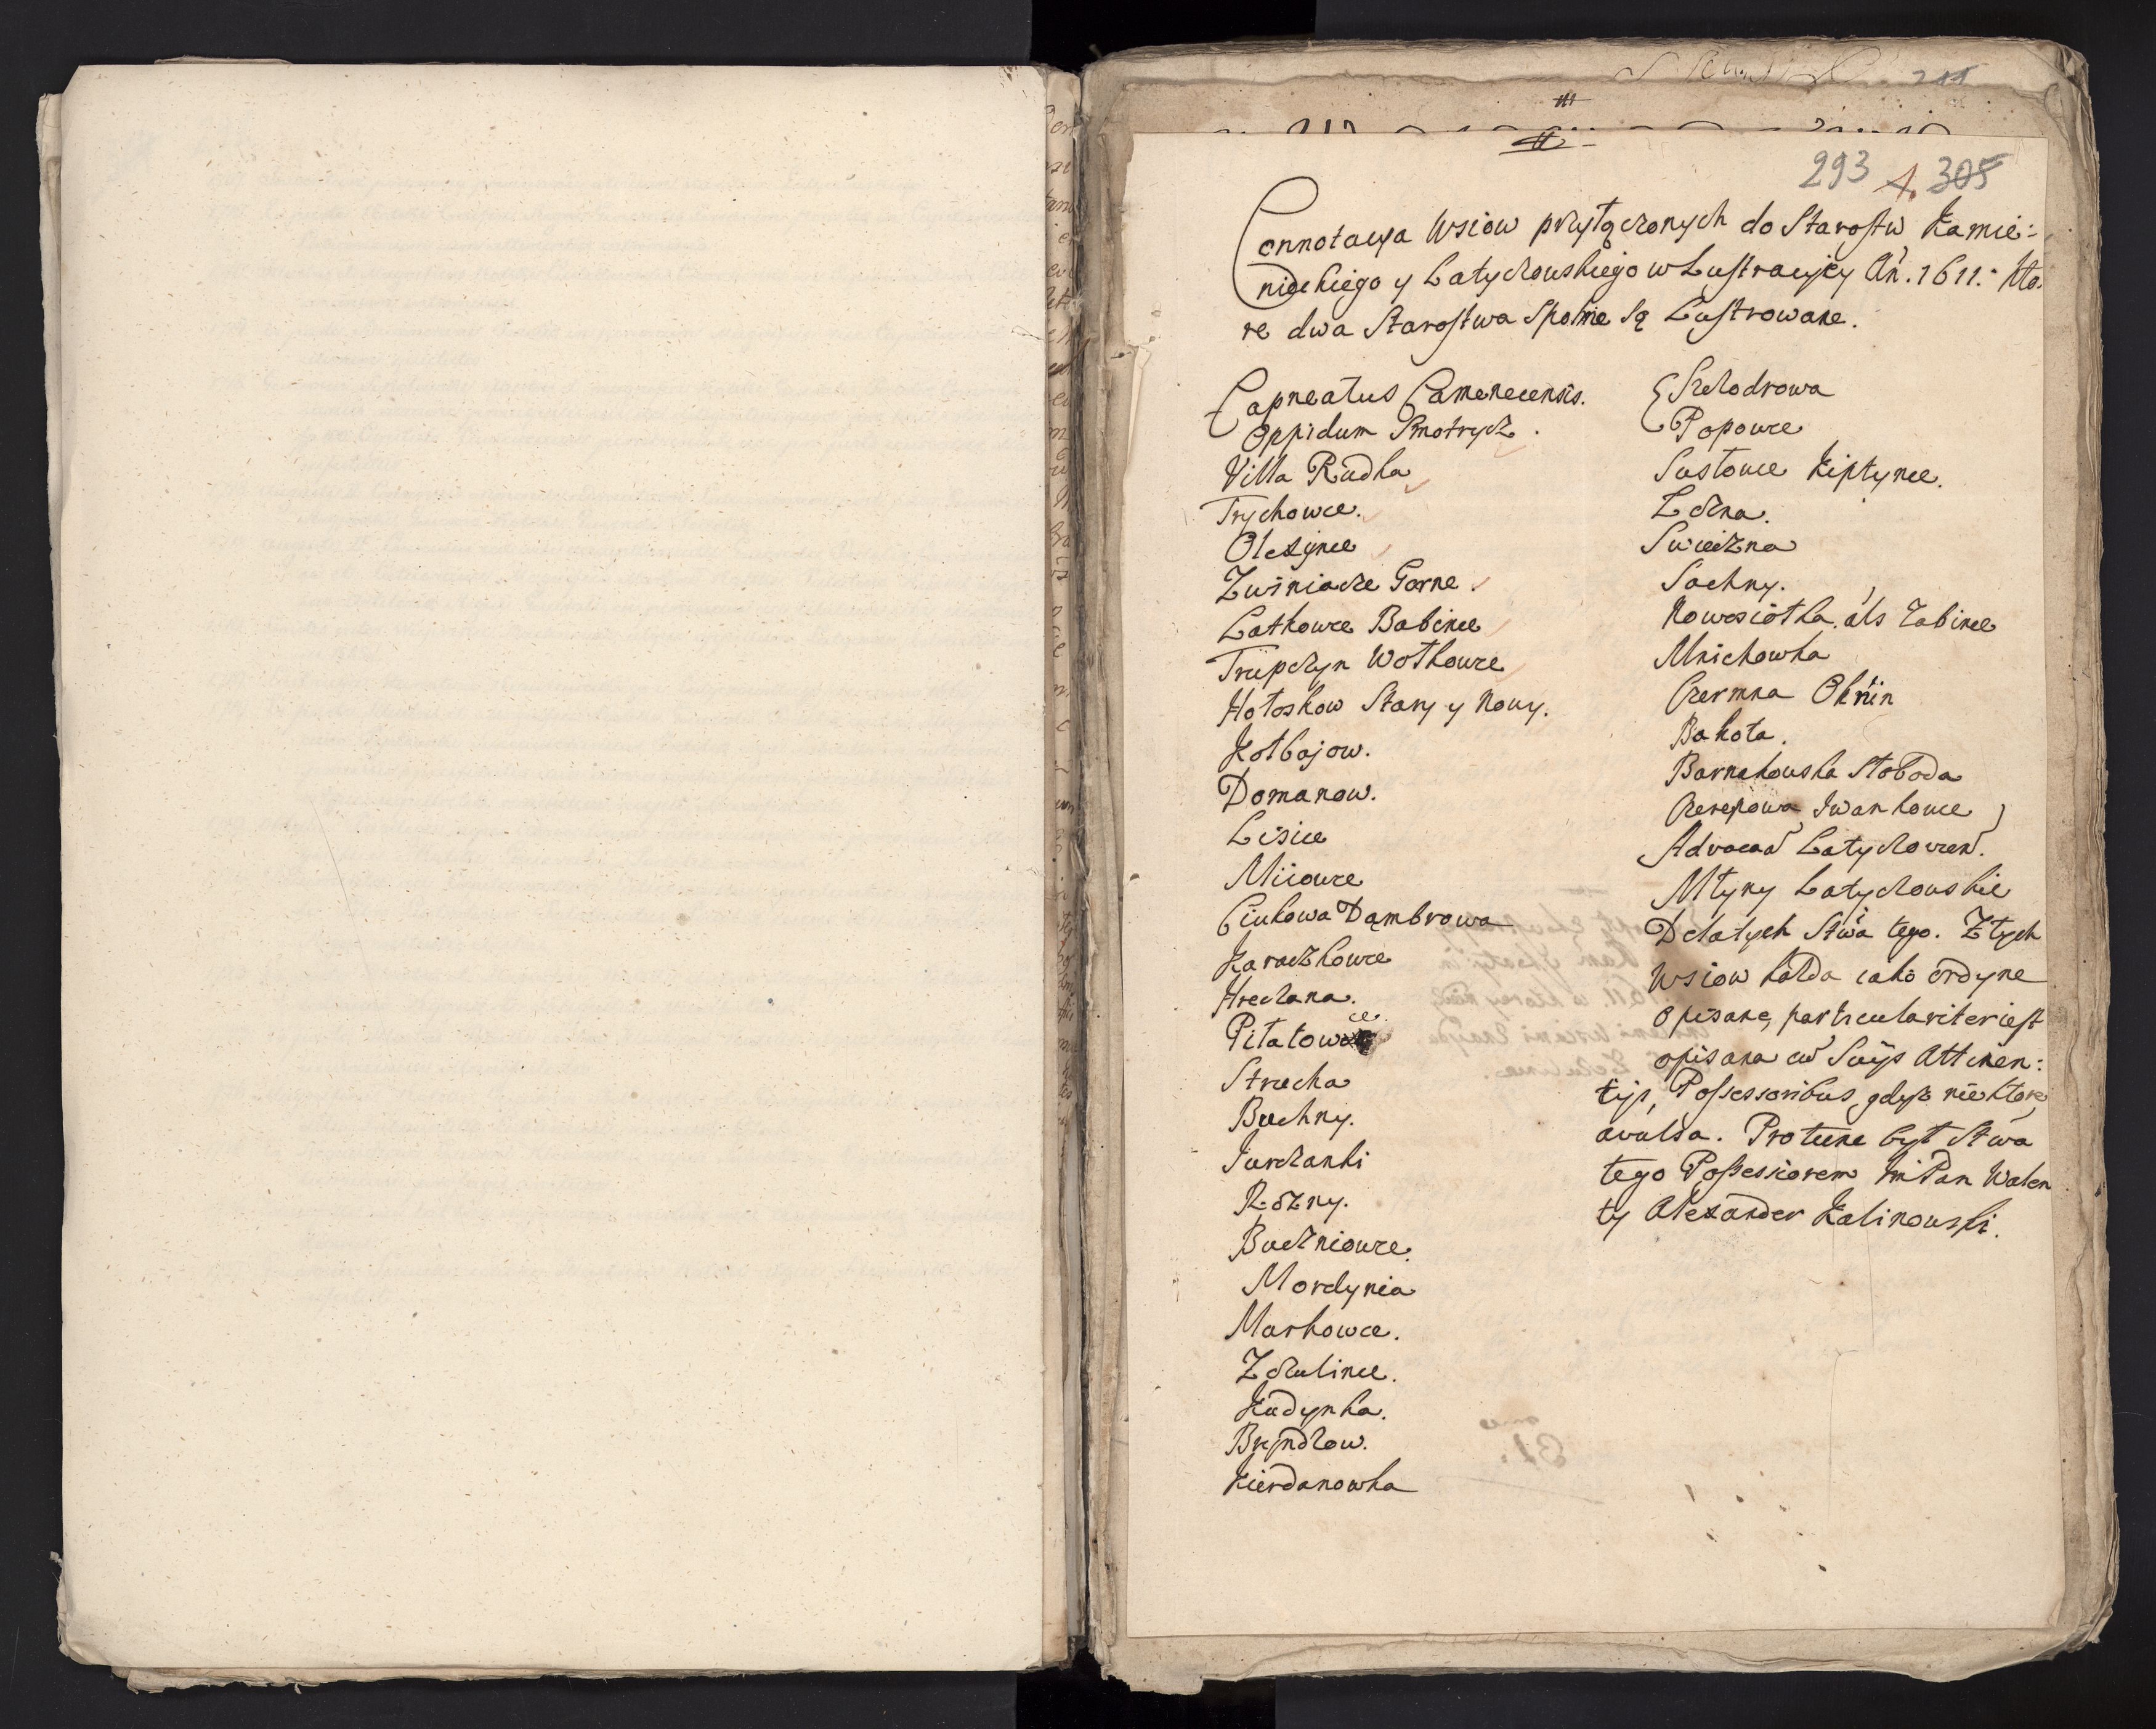 293 1. 305
Connotacya Wsiow przyłączonych do Starostw Kamie=
nieckiego y Latyczowskiego w Lustracyey An. 1611. kto.
re dwa Starostwa Spolnie Są Lustrowane.
Capneatus Camenecensis.
Oppidum Smotrycz.
Villa Rudka
Trychowce.
Olexynce
Zwiniacze Gorne.
Latkowce Babince
Trupczyn Wołkowce
Hołoskow Stary y Nowy.
Kołbajow.
Domanow.
Lisice
Miiowce
Ciukowa Dąmbrowa
Karaczkowce
Hreczana.
Pilatowce
Strucha
Buchny.
Jurczanki
Rozny.
Buczniowce.
Mordynia
Markowce.
Zczulince.
Kudynka.
Bryndzow.
Kierdanowka
Szczodrowa
Popowce
Susłowce Kiptynce.
Zczna.
Swieizna
Sachny.
Nowosiołka als Zabince
Mnichowka
Czermna Oknin
Bakota.
Barnakowska Słoboda
Czerepowa Iwankowce
Advocad Latyczowien.
Młyny Latyczowskie
Delatych Stwa tego. Z tych
Wsiow każda iako ordyne
opisane, particulariter iest
opisana cu Suis Attinen:
tijs, Possessoribus, gdysz niektore
avulsa. Protunc był Stwa
tego Possessorem Im Pan Walen
ty Alexander Kalinowski.